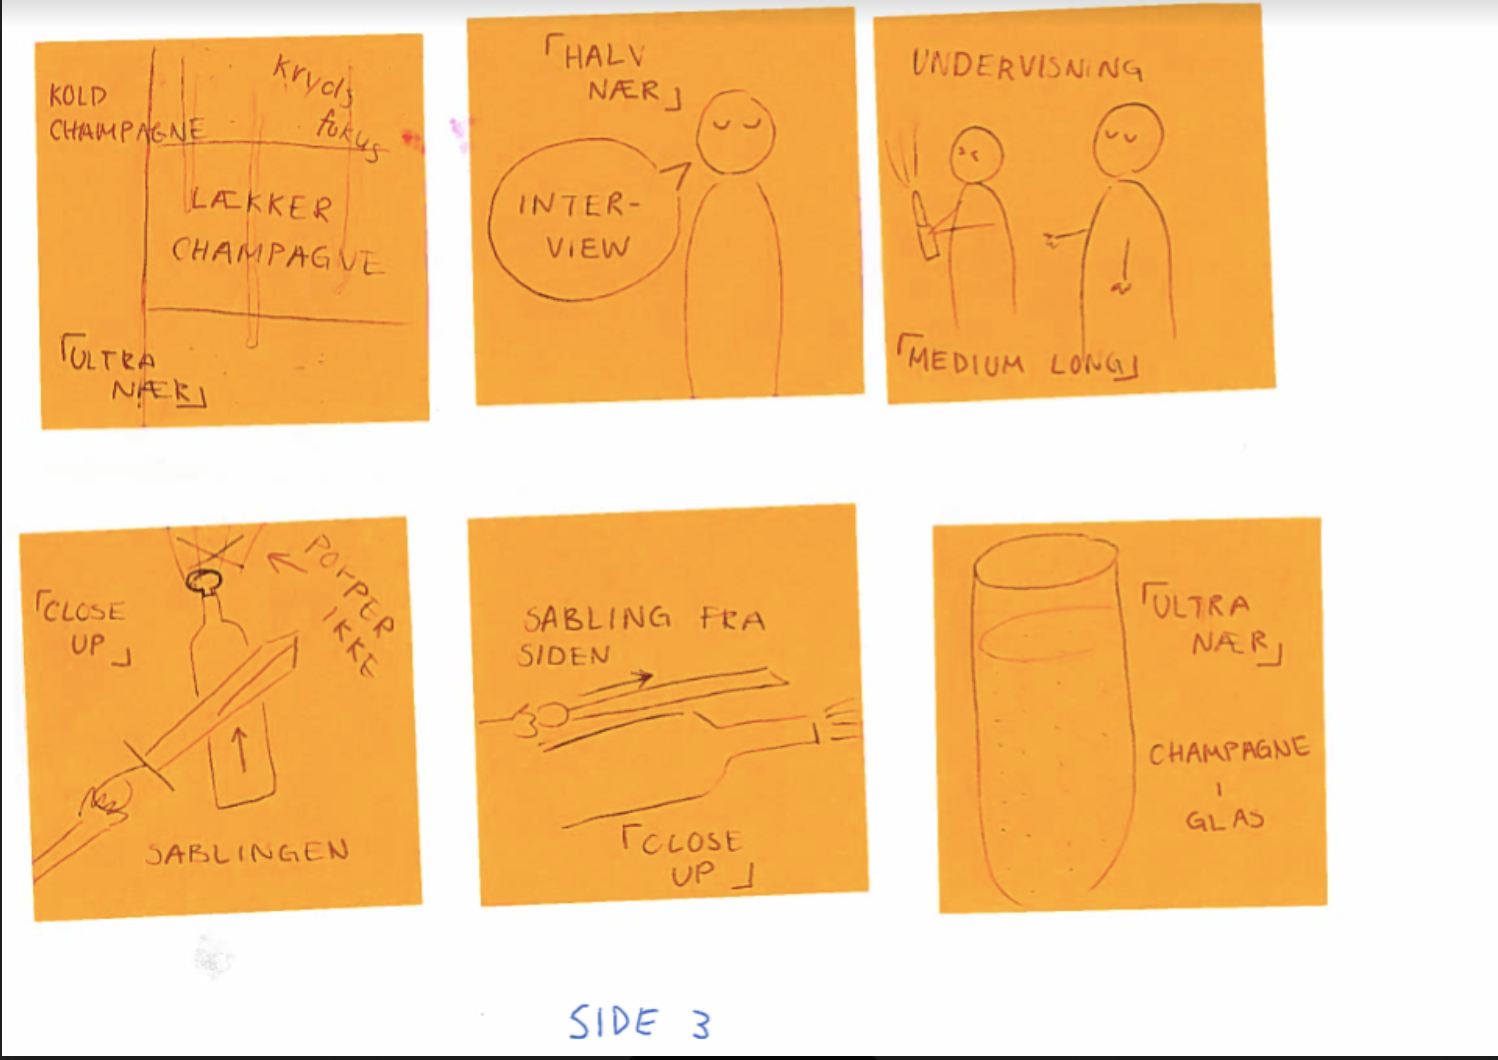 KOLD
CHAMPAGNE
kryds
fokus
LÆKKER
CHAMPAGNE
「ULTRA
NÆR」
「HALV
NÆR」
INTER-
VIEW
UNDERVISNING
「MEDIUM LONG」
「CLOSE
UP」
POPPER
IKKE
SABLINGEN
SABLING FRA
SIDEN
「CLOSE
UP」
「ULTRA
NÆR」
CHAMPAGNE
I
GLAS
SIDE 3